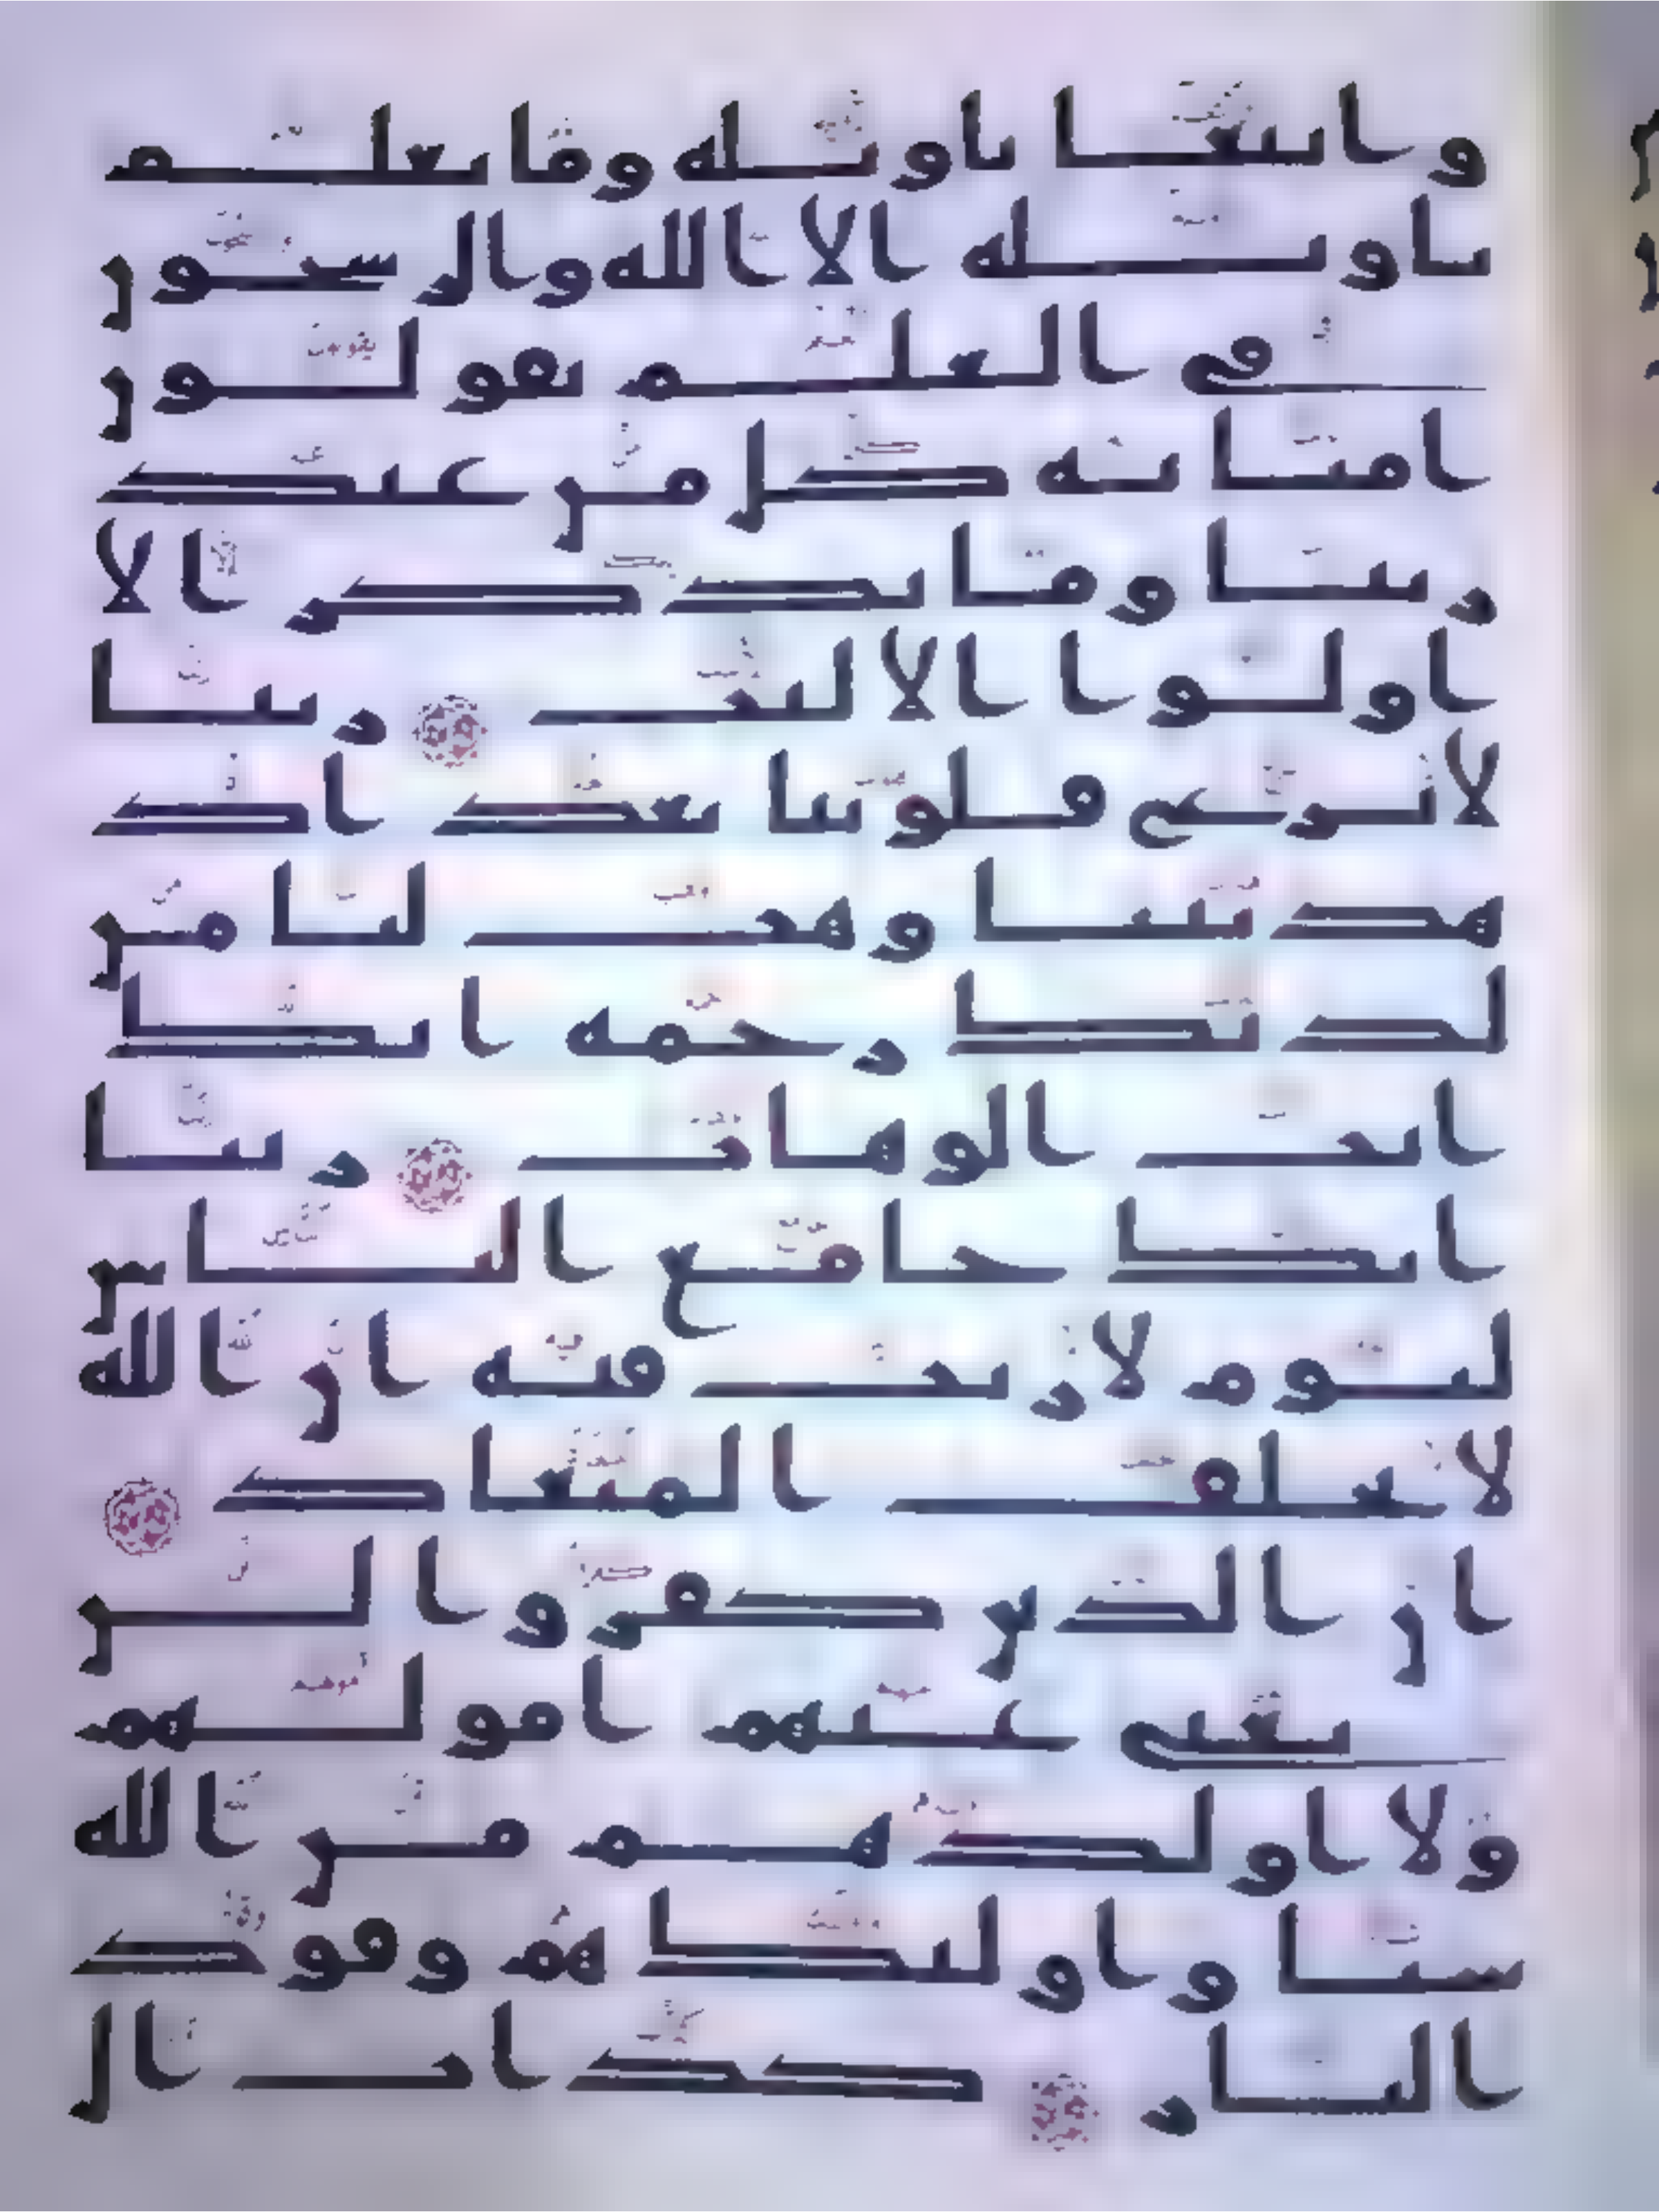 وابتغا تاويله وما يعلم
تاويله الا الله والرسخون
في العلم يقولون
امنا به كل من عند
ربنا وما يذكر الا
اولوا الالبب ۝ ربنا
لا تزغ قلوبنا بعد اذ
هديتنا وهب لنا من
لدنك رحمة انك
انت الوهاب ۝ ربنا
انك جامع الناس
ليوم لا ريب فيه ان الله
لا يخلف الميعاد ۝
ان الذين كفروا لن
تغني عنهم امولهم
ولا اولدهم من الله
شيا واوليك هم وقود
النار ۝ كداب ال